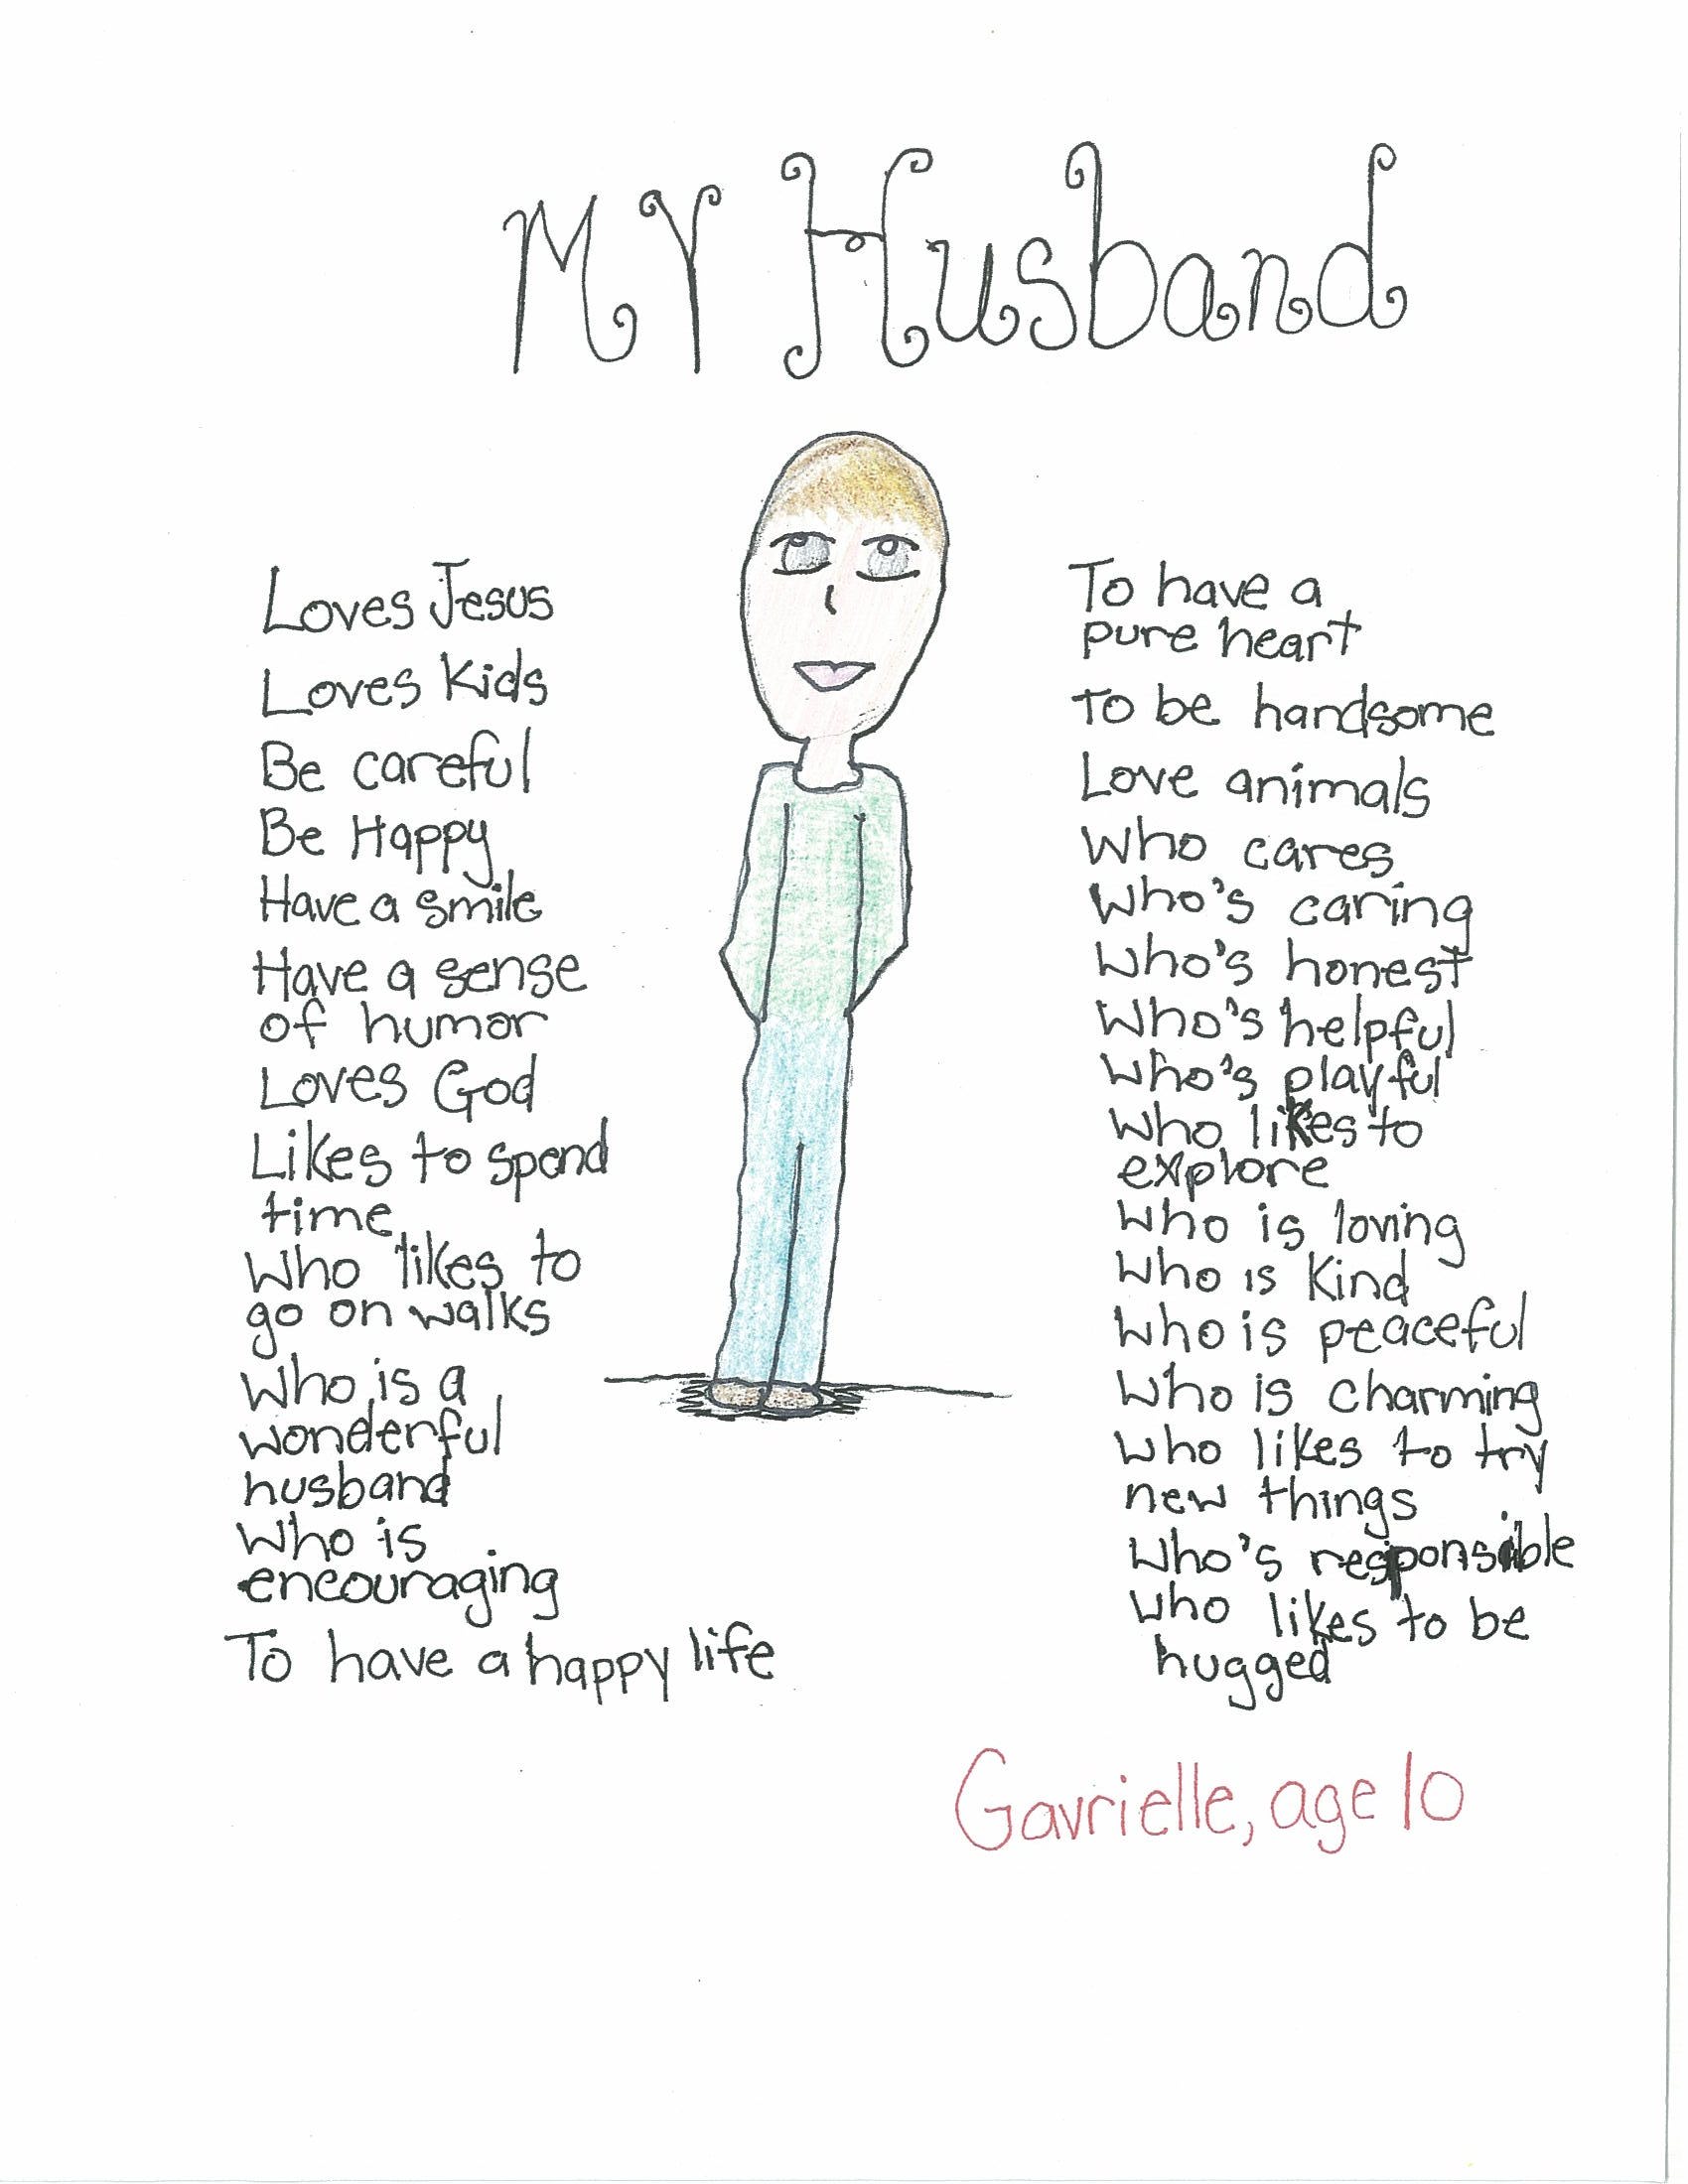 My Husband
Loves Jesus
Loves Kids
Be careful
Be Happy
Have a smile
Have a sense
of humor
Loves God
Likes to spend
time
Who likes to
go on walks
Who is a
wonderful
husband
Who is
encouraging
To have a happy life
To have a
pure heart
To be handsome
Love animals
Who cares
Who's caring
Who's honest
Who's helpful
Who's playful
Who likes to
explore
Who is loving
Who is Kind
Who is peaceful
Who is charming
Who likes to try
new things
Who's responsible
Who likes to be
hugged
Gavrielle, age 10